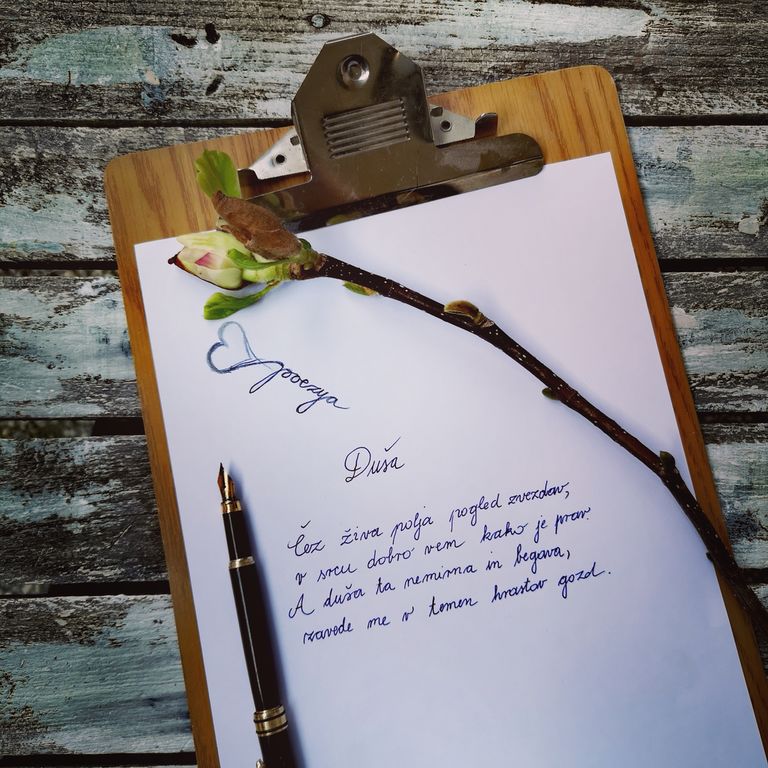 poezija
Duša
Čez živa polja pogled zvezdav,
v srcu dobro vem kako je prav.
A duša ta nemirna in begava,
zavede me v temen hrastov gozd.